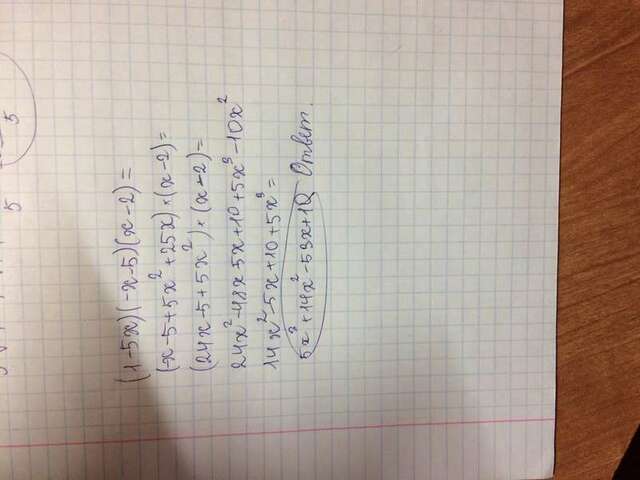 (1-5x)(-x-5)(x-2)=
(-x-5+5x²+25x)×(x-2)=
(24x-5+5x²)×(x-2)=
24x²-48x-5x+10+5x³-10x²
14x²-5x+10+5x³=
5x³+14x²-53x+10 Ответ.